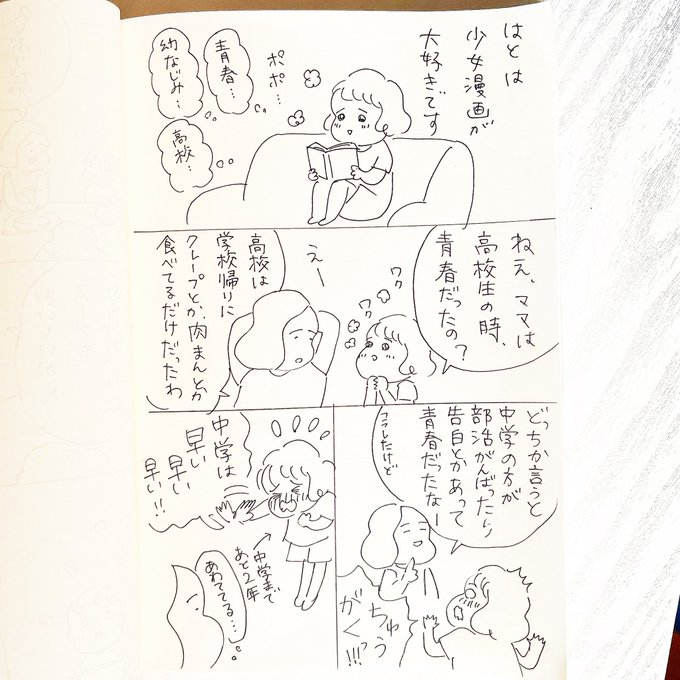 はとは
少女漫画が
大好きです
ポポ…
青春…
幼なじみ…
高校…
ねえ、ママは
高校生の時、
青春だったの？
ワク
ワク
えー
高校は
学校帰りに
クレープとか、肉まんとか
食べてるだけだったわ
どっちか言うと
中学の方が
部活がんばったり
告白とかあって
青春だったなー
フラレたけど
ちゅう
がくっ!!!
中学は
早い
早い
早い!!
中学まで
あと2年
あわててる…